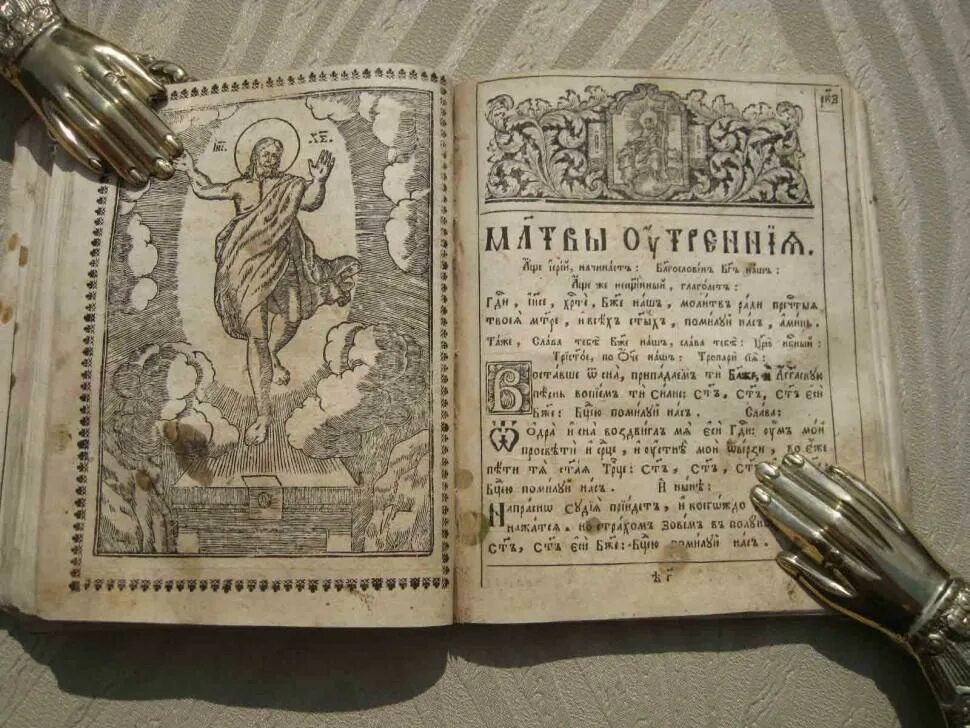 І҃ИС. ХС҃.
рк҃з
МЛ҃ТВЫ ОУ҆ТРЕННІѦ.
А҆́ще і҆ере́й, начина́етъ: Благослове́нъ бг҃ъ на́шъ:
А҆́ще же несщ҃е́нный, глаго́летъ:
Гд҇и, і҆и҃се, хр҇те, бж҃е на́шъ, моли́твъ ра́ди преч҇тыѧ
твоеѧ̀ мт҃ре, и҆ всѣ́хъ ст҃ы́хъ, поми́лꙋй на́съ, а҆ми́нь.
Та́же, Сла́ва тебѣ̀ бж҃е на́шъ, сла́ва тебѣ̀: Цр҃ю̀ нб҇ный:
Трист҃о́е, по Ѻ҆́ч҃е на́шъ: Тропари̑ сїѧ̑:
Воста́вше ѿ сна̀, припа́даемъ ти бл҃же, и҆ а҆́гг҃лскꙋю
пѣ́снь вопїе́мъ ти си́лне: Ст҃ъ, Ст҃ъ, Ст҃ъ є҆сѝ
Бж҃е: Бц҇ею поми́лꙋй на́съ. Сла́ва:
Ѿ ѻ҆дра̀ и҆ сна̀ воздви́глъ мѧ̀ є҆сѝ Гд҇и: ᲂу҆́мъ мо́й
просвѣтѝ и҆ ср҇це, и҆ ᲂу҆стнѣ̀ моѝ ѿве́рзи, во є҆́же
пѣ́ти тѧ̀ ст҃а́ѧ Трⷪ҇це: Ст҃ъ, Ст҃ъ, Ст҃ъ
Бц҇ею поми́лꙋй на́съ. И҆ ны́нѣ:
Напра́снѡ сꙋдїѧ̀ прїи́детъ, и҆ коегѡ́ждо
нажа́тсѧ. но стра́хомъ зове́мъ въ полꙋ
Ст҃ъ, Ст҃ъ є҆сѝ Бж҃е: Бц҇ею поми́лꙋй на́съ.